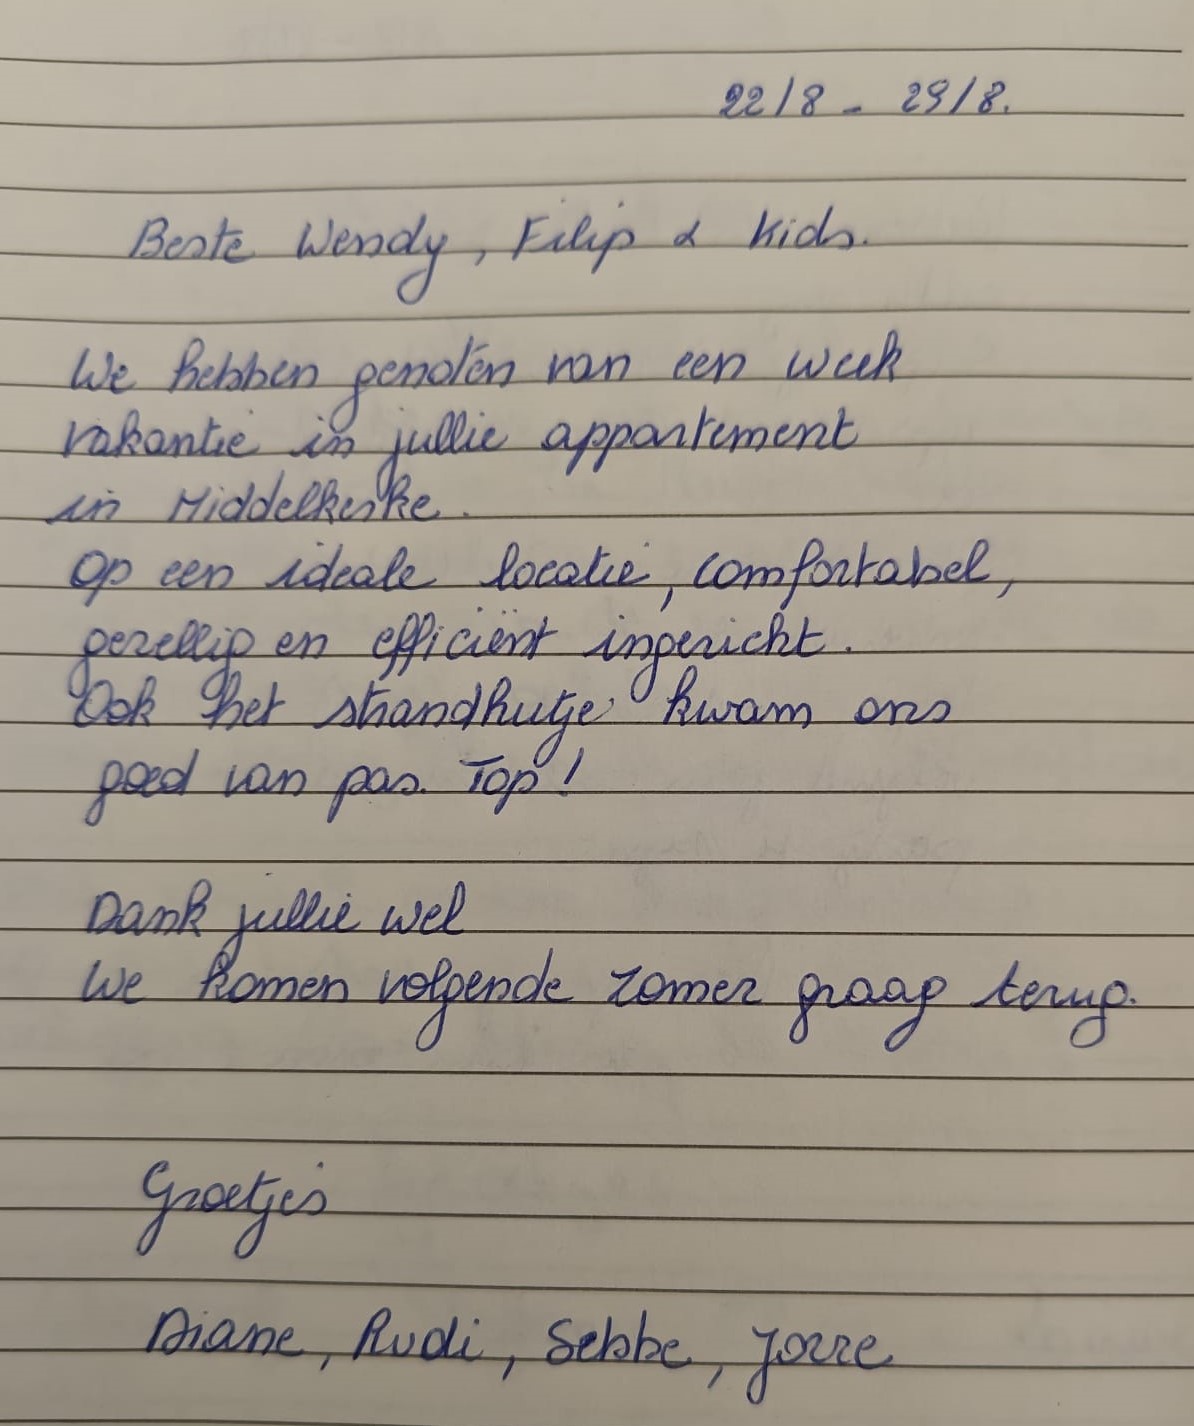 22/8 - 29/8.
Beste Wendy, Filip & Kids.
We hebben genoten van een week
vakantie in jullie appartement
in Middelkerke.
Op een ideale locatie, comfortabel,
gezellig en efficiënt ingericht.
Ook het strandhutje kwam ons
goed van pas. Top!
Dank jullie wel
We komen volgende zomer graag terug.
Groetjes
Diane, Rudi, Sebbe, Jorre